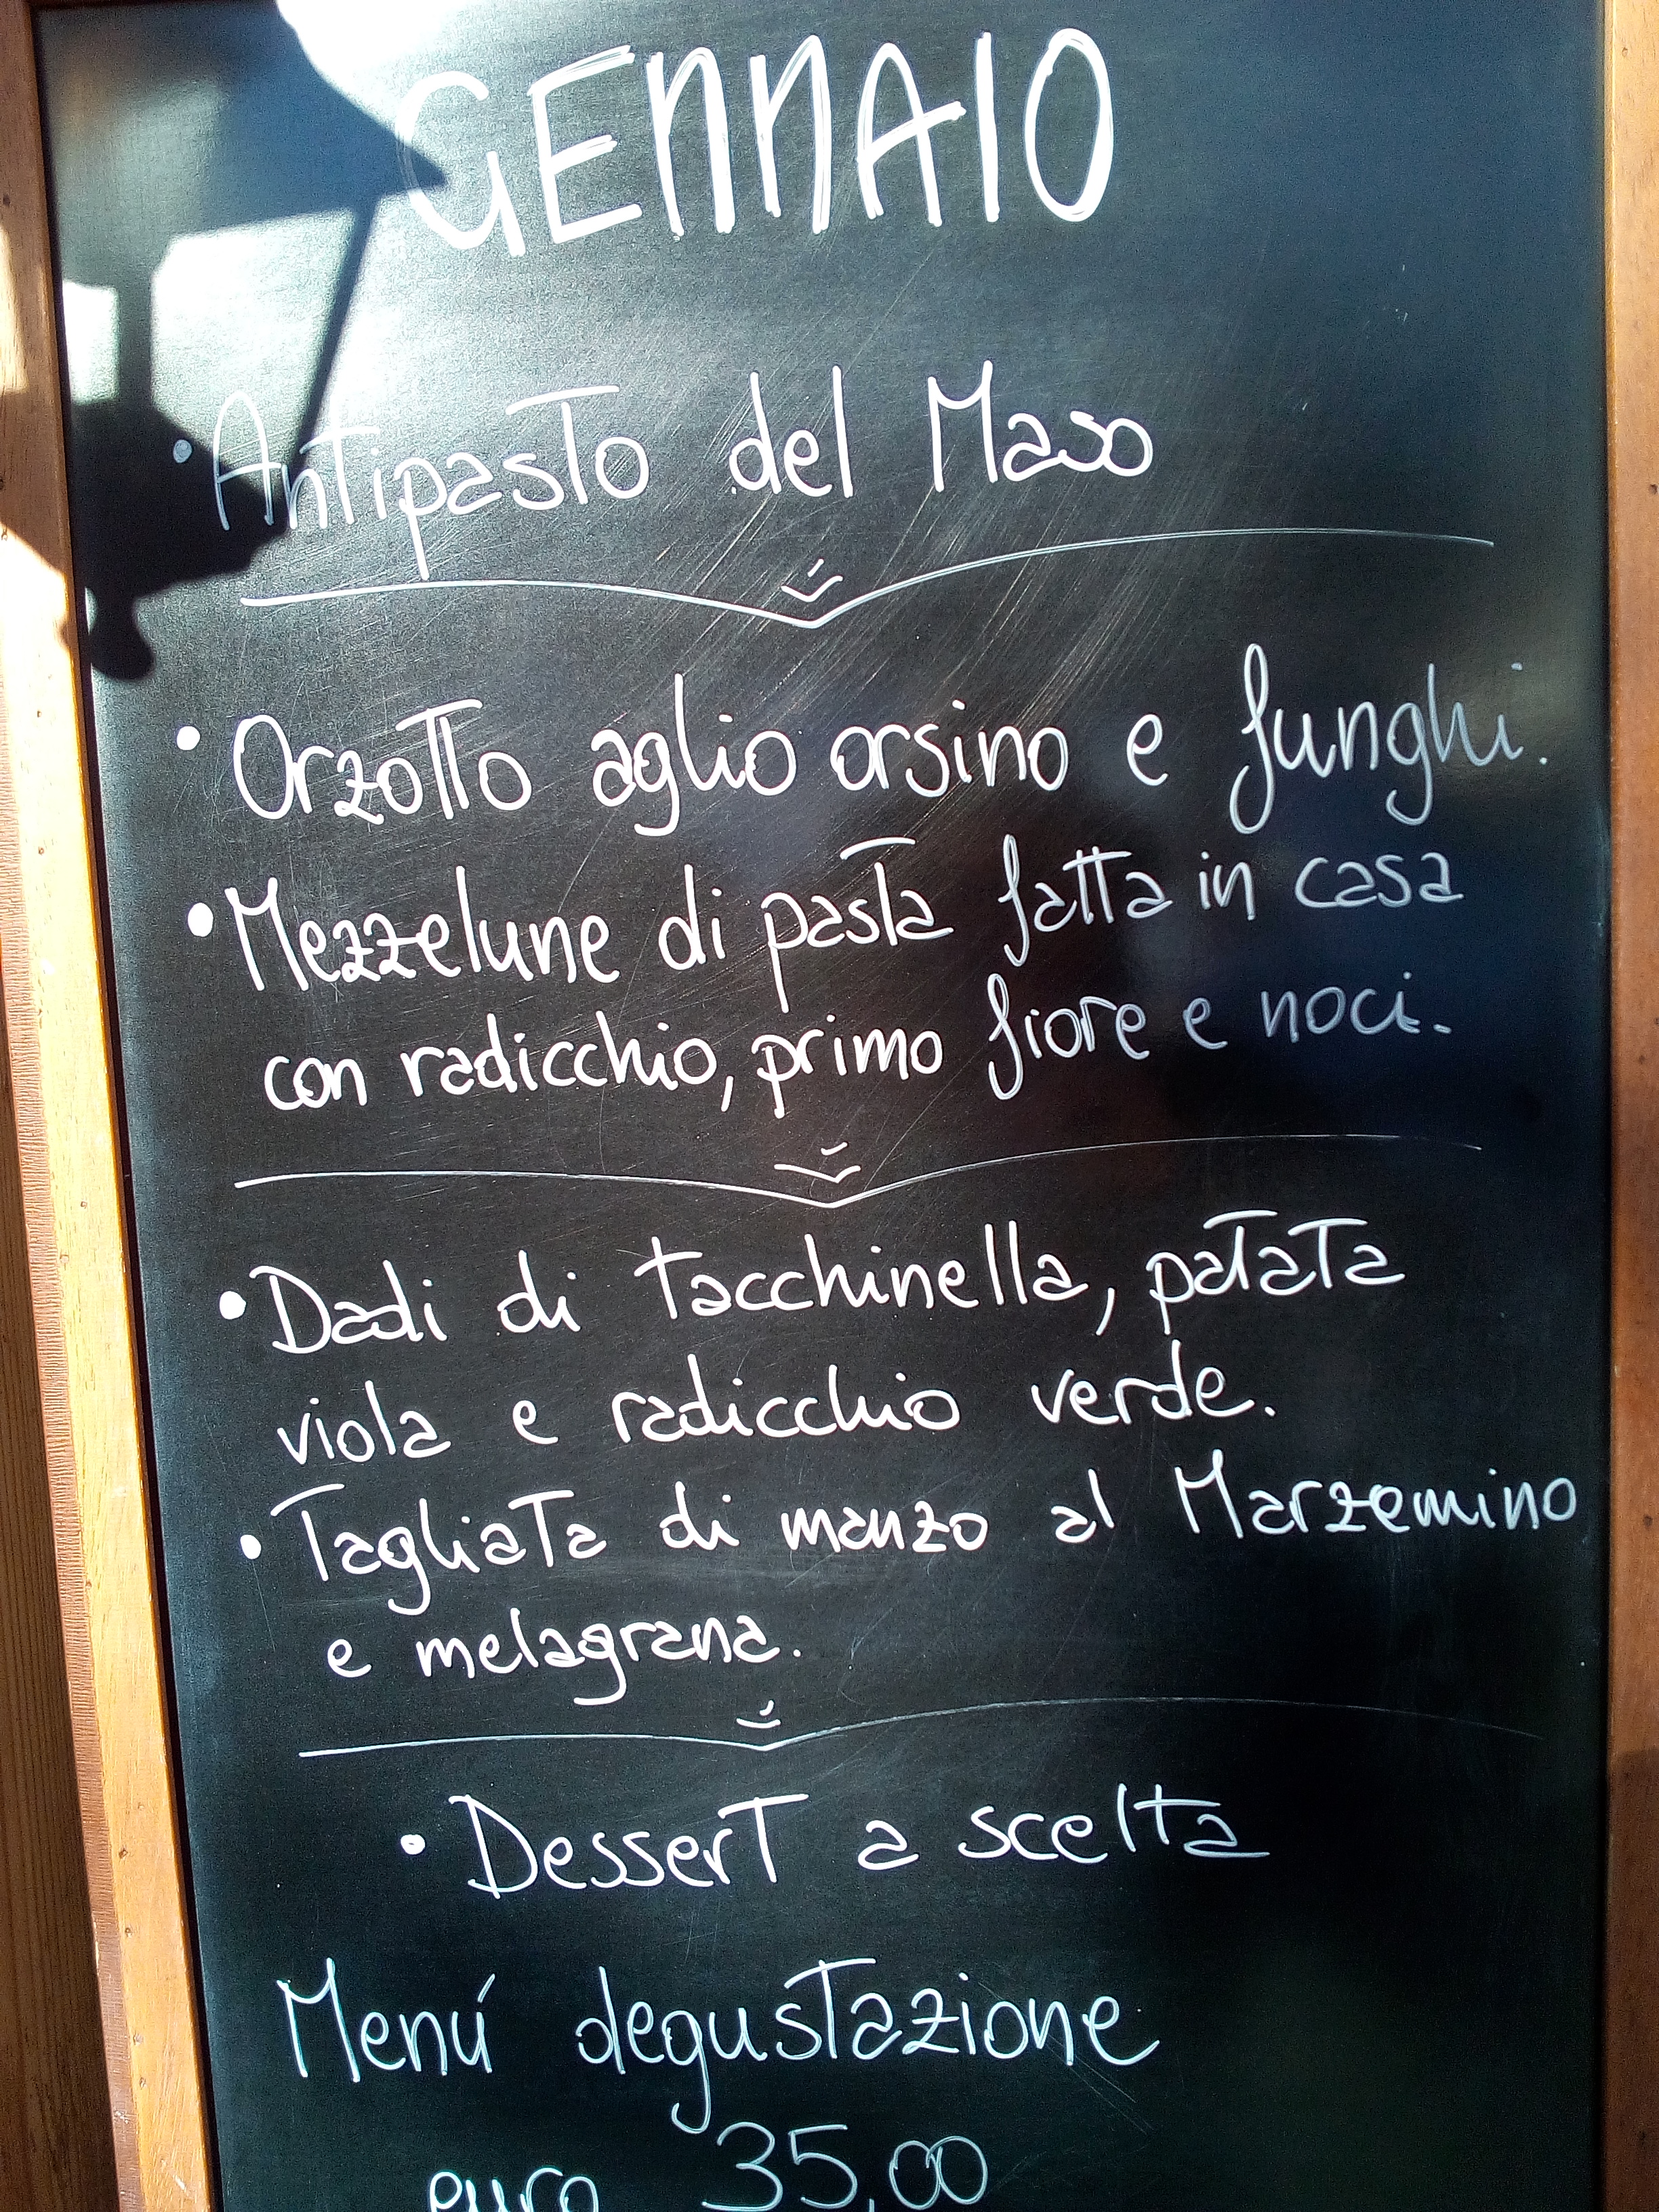 GENNAIO
• Antipasto del Maso
• Orzotto aglio orsino e funghi.
• Mezzelune di pasta fatta in casa
con radicchio, primo fiore e noci.
• Dadi di tacchinella, patata
viola e radicchio verde.
• Tagliata di manzo al Marzemino
e melagrana.
• Dessert a scelta
Menú degustazione
euro 35,00